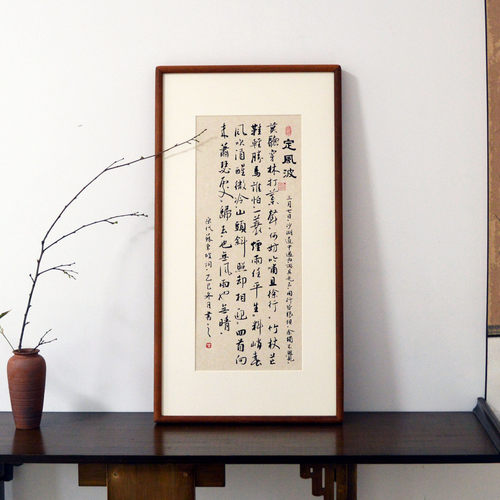 定風波
三月七日沙湖道中遇雨雨具先去同行皆狼狽余獨不覺
莫聽穿林打葉聲何妨吟嘯且徐行竹杖芒
鞋輕勝馬誰怕一蓑煙雨任平生料峭春
風吹酒醒微冷山頭斜照卻相迎回首向
來蕭瑟處歸去也無風雨也無晴
宋代蘇東坡詞乙巳冬月書之